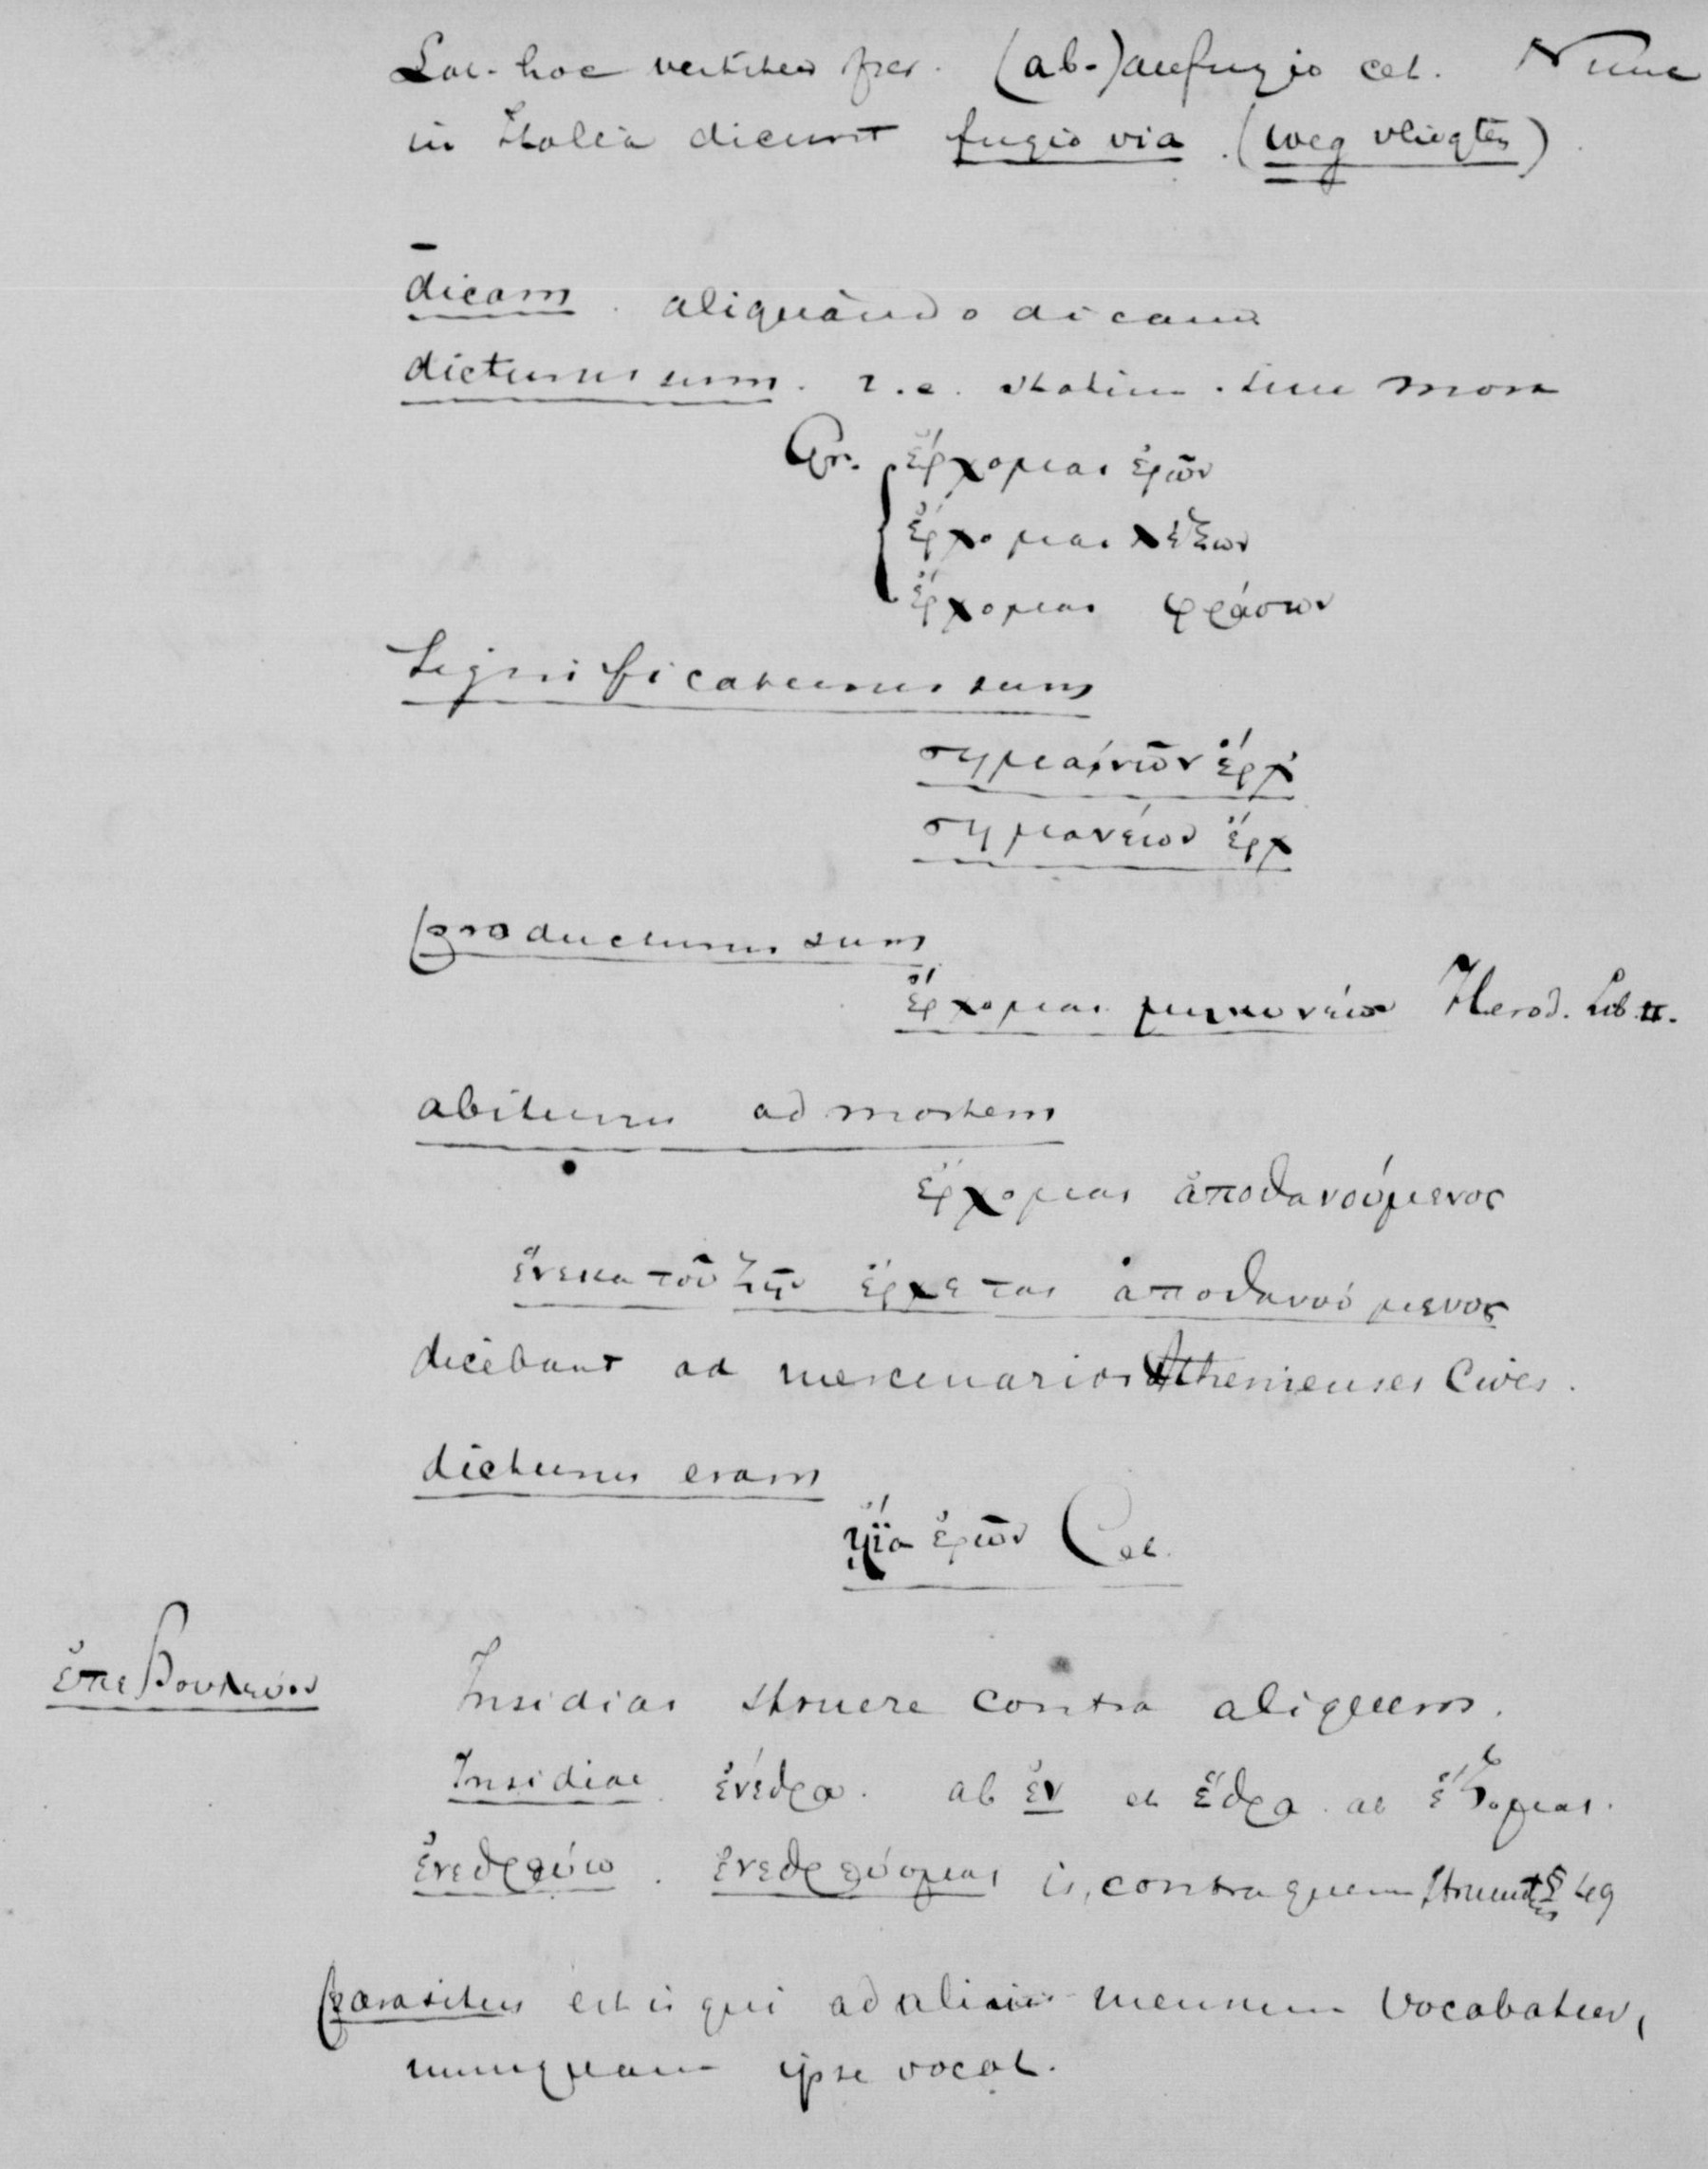 Lat. hoc vertitur per. (ab-)aufugio cet. Nunc
in Italia dicunt fugio via. (weg vliegten)
dicam. aliquando dicam
dicturus sum. i.e. statim. sine mora
Gr. ἔρχομαι ἐρῶν
ἔρχομαι λέξων
ἔρχομαι φράσων
Significaturus sum
σημαινῶν ἔρχ
σημανέων ἔρχ
producturus sum
ἔρχομαι μηκυνέων Herod. Lib. II.
abiturus ad mortem
ἔρχομαι ἀποθανούμενος
ἕνεκα τοῦ ζῆν ἔρχεται ἀποθανούμενος
dicebant ad mercenarios Athenienses Cives.
dicturus eram
ἤϊα ἐρῶν Cet.
ἐπεβουλεύον Insidias struere contra aliquem.
Insidiae ἐνέδρα. ab ἐν et ἕδρα. ab ἕζομαι.
ἐνεδρεύω. ἐνεδρεύομαι is, contra quem struunt
parasitus est is qui ad mensam vocabatur,
nunquam ipse vocat.